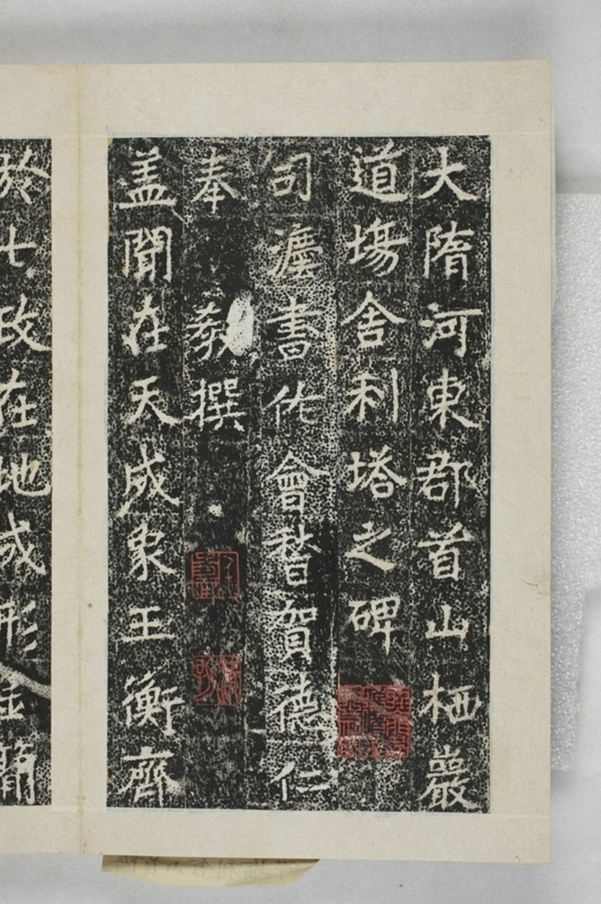 大隋河東郡首山栖巖
道塲舍利塔之碑
司灋書佐會稽賀德仁
奉 敎撰
盖聞在天成象王衡齊
於七政在地成形金簡